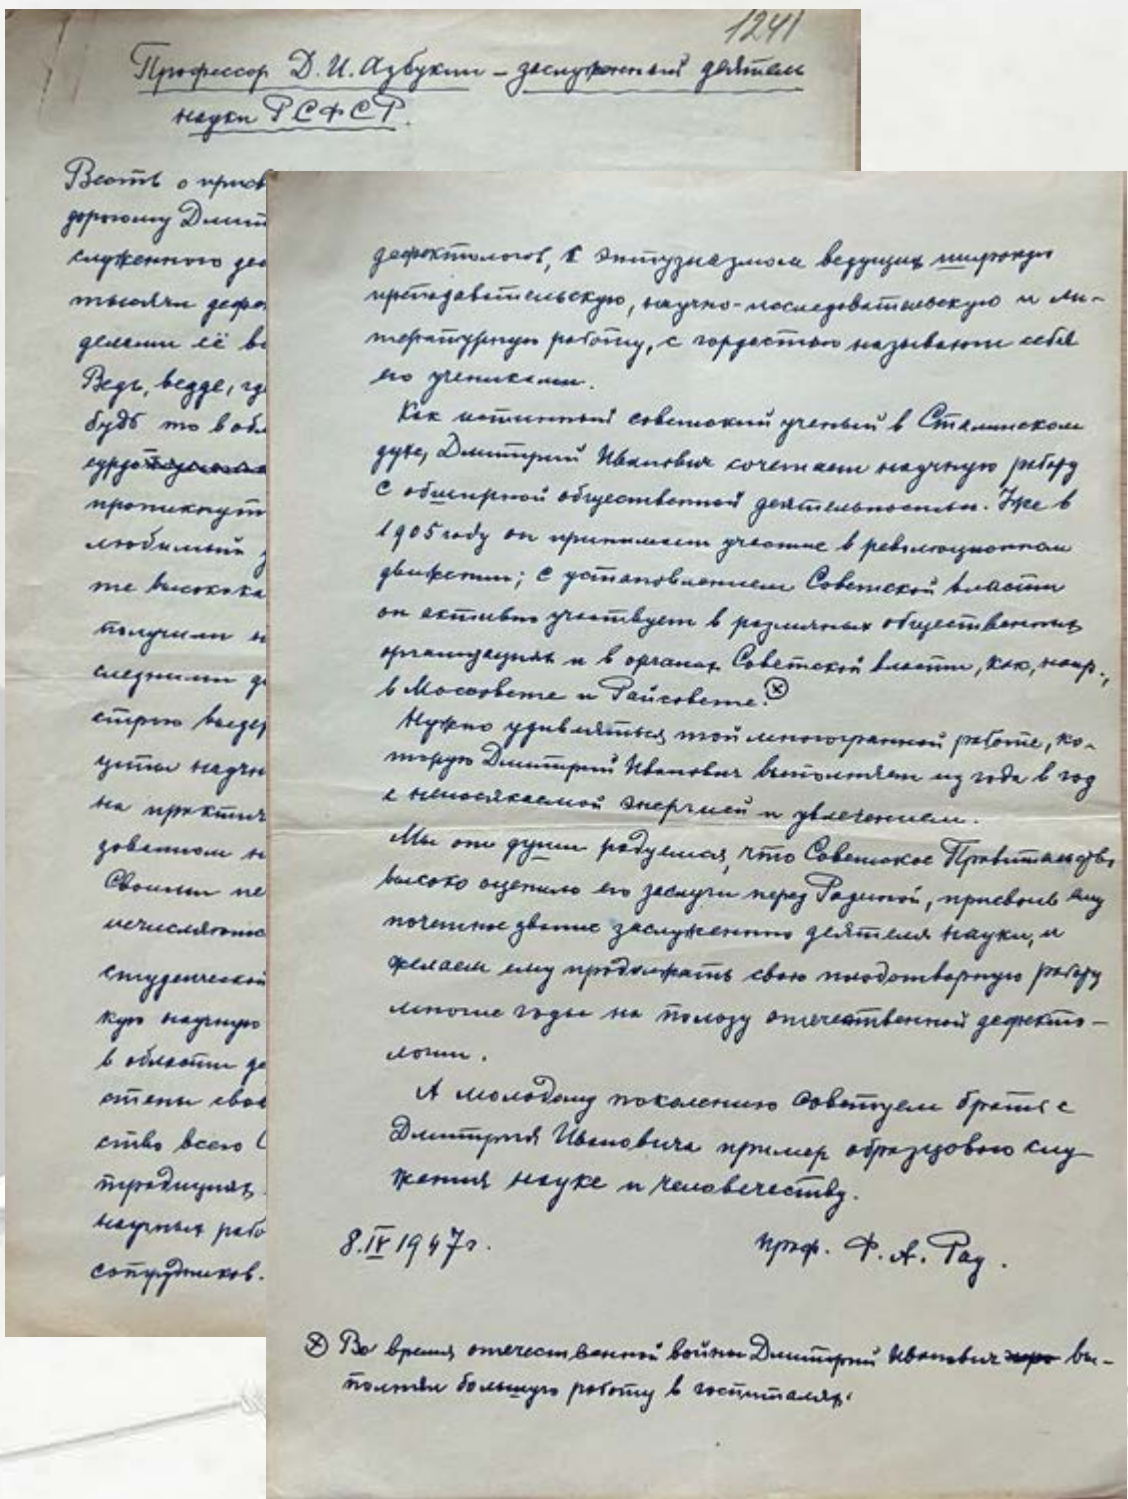 1241
Профессор Д. И. Азбукин – заслуженный деятель
науки РСФСР.
Весть о присв
дорогому Дмит
служенного дея
тысячи дефек
делами её во
Ведь, везде, гд
будь то в обл
сурдо
проникнут
любимый
те высокока
получили
следними
стрию выдер
циты научн
на практич
зованном н
Своими пе
исчисляютс
студенческой
кую научную
в области де
стены свое
ство всего С
традициях
научных рабо
сотрудников.
дефектологов, с энтузиазмом ведущих широкую
преподавательскую, научно-исследовательскую и ли-
тературную работу, с гордостью называют себя
его учениками.
Как истинный советский ученый в Сталинском
духе, Дмитрий Иванович сочетает научную работу
с обширной общественной деятельностью. Уже в
1905 году он принимает участие в революционном
движении; с установлением Советской власти
он активно участвует в различных общественных
организациях и в органах Советской власти, как, напр.,
в Моссовете и Райсовете. ⊗
Нужно удивляться той многогранной работе, ко-
торую Дмитрий Иванович выполняет из года в год
с неиссякаемой энергией и увлечением.
Мы от души радуемся, что Советское Правительство
высоко оценило его заслуги перед Родиной, присвоив ему
почетное звание заслуженного деятеля науки, и
желаем ему продолжать свою плодотворную работу
многие годы на пользу отечественной дефекто-
логии.
А молодому поколению советуем брать с
Дмитрия Ивановича пример образцового слу-
жения науке и человечеству.
8.IV 1947г. проф. Ф. А. Рау.
⊗ Во время отечественной войны Дмитрий Иванович вы-
полнял большую работу в госпиталях.